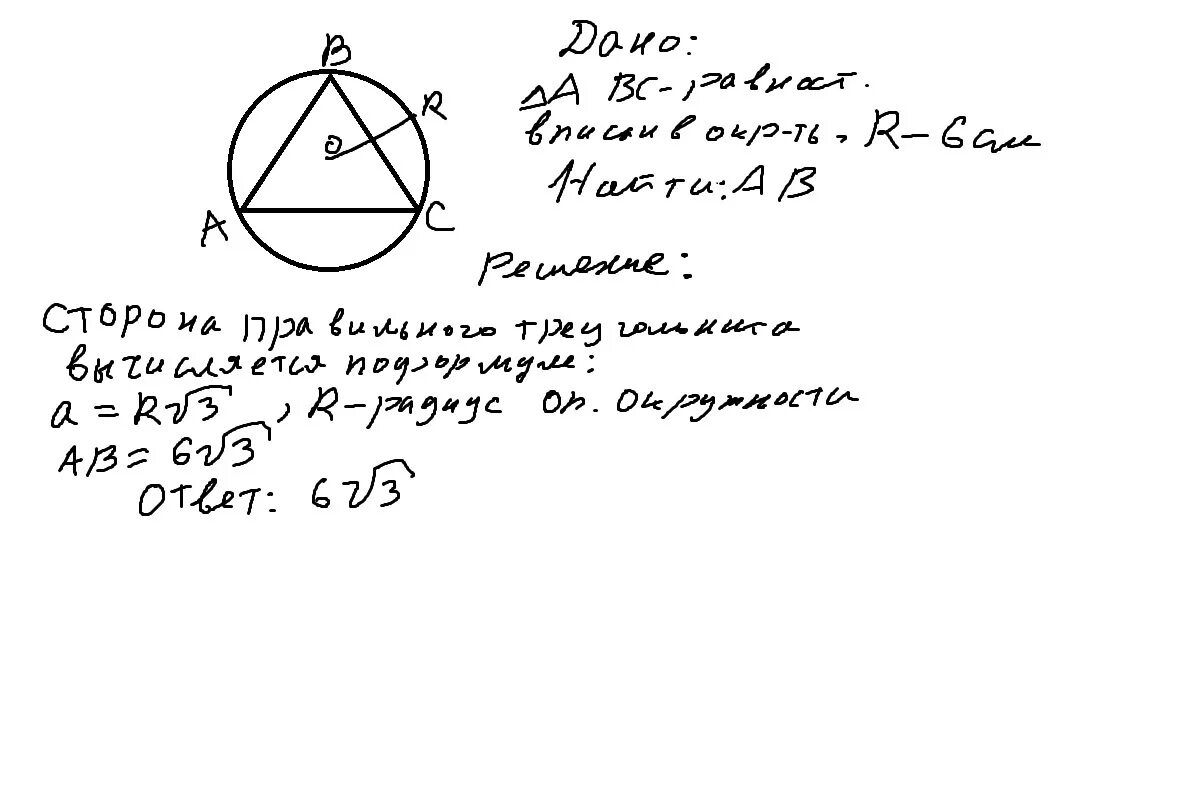 B
R
O
A
C
Дано:
△ABC - равност.
вписан в окр-ть, R - 6 см
Найти: AB
Решение:
Сторона правильного треугольника
вычисляется по формуле:
a = R√3, R - радиус оп. окружности
AB = 6√3
Ответ: 6√3